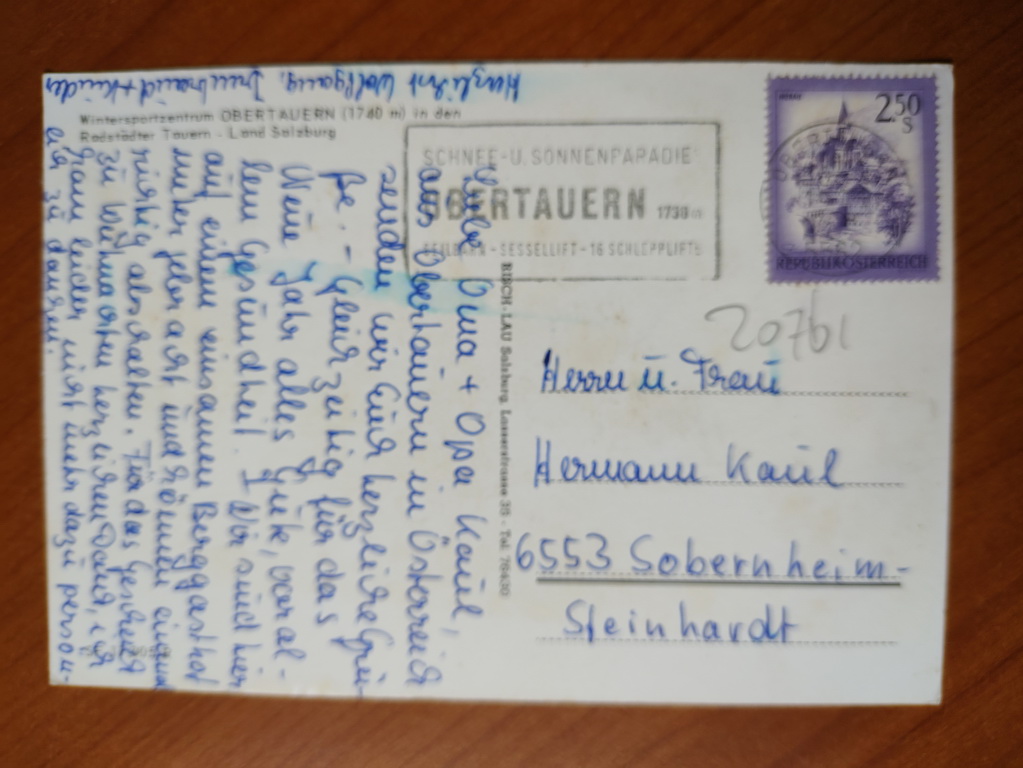 Wintersportzentrum OBERTAUERN (1740 m) in den
Radstädter Tauern - Land Salzburg
SCHNEE-U. SONNENPARADIES
OBERTAUERN 1739 m
SEILBAHN - SESSELLIFT - 16 SCHLEPPLIFTE
2.50
S
REPUBLIK ÖSTERREICH
20761
RISCH-LAU Salzburg, Lasserstrasse 35 - Tel. 76430
Herrn u. Frau
Hermann Kaul
6553 Sobernheim-
Steinhardt
Liebe Oma + Opa Kaul,
aus Obertauern in Österreich
senden wir Euch herzliche Grü-
ße. - Gleichzeitig für das
Neue Jahr alles Gute, vor al-
lem Gesundheit! - Wir sind hier
auf einem einsamen Berggasthof
unter gebracht und können einmal
richtig abschalten. Für das Geschenk
zu Weihnachten herzlichen Dank, ich
kam leider nicht mehr dazu persön-
lich zu danken.
Herzlichst Wolfgang, + Kinder